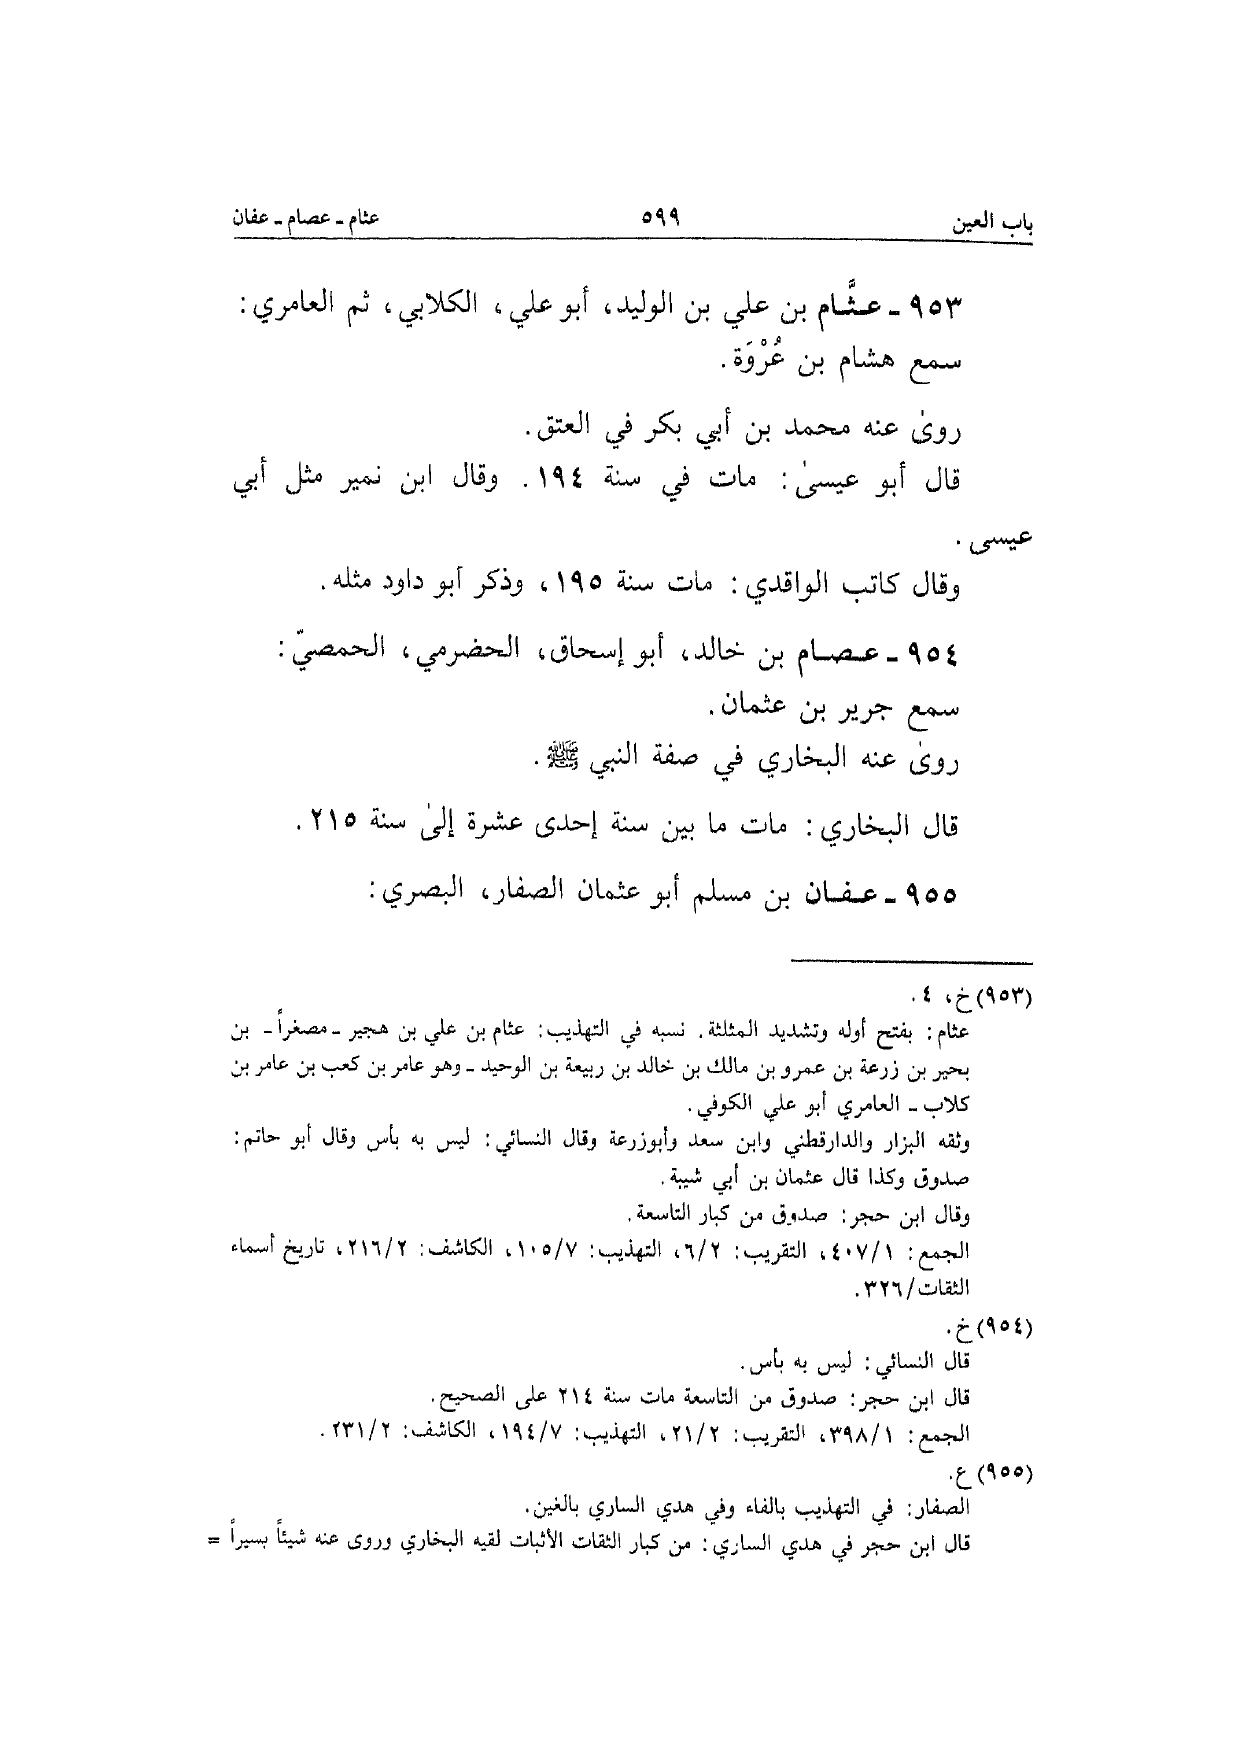 باب العين ٥٩٩ عثام - عصام - عفان
٩٥٣ - عثَّام بن علي بن الوليد، أبو علي، الكلابي، ثم العامري:
سمع هشام بن عُرْوَة.
روىٰ عنه محمد بن أبي بكر في العتق.
قال أبو عيسىٰ: مات في سنة ١٩٤. وقال ابن نمير مثل أبي
عيسى.
وقال كاتب الواقدي: مات سنة ١٩٥، وذكر أبو داود مثله.
٩٥٤ - عصام بن خالد، أبو إسحاق، الحضرمي، الحمصيّ:
سمع جرير بن عثمان.
روىٰ عنه البخاري في صفة النبي ﷺ.
قال البخاري: مات ما بين سنة إحدى عشرة إلىٰ سنة ٢١٥.
٩٥٥ - عفان بن مسلم أبو عثمان الصفار، البصري:
(٩٥٣) خ، ٤.
عثام: بفتح أوله وتشديد المثلثة. نسبه في التهذيب: عثام بن علي بن هجير - مصغراً - بن
بحير بن زرعة بن عمرو بن مالك بن خالد بن ربيعة بن الوحيد - وهو عامر بن كعب بن عامر بن
كلاب - العامري أبو علي الكوفي.
وثقه البزار والدارقطني وابن سعد وأبوزرعة وقال النسائي: ليس به بأس وقال أبو حاتم:
صدوق وكذا قال عثمان بن أبي شيبة.
وقال ابن حجر: صدوق من كبار التاسعة.
الجمع: ٤٠٧/١، التقريب: ٦/٢، التهذيب: ١٠٥/٧، الكاشف: ٢١٦/٢، تاريخ أسماء
الثقات/٣٢٦.
(٩٥٤) خ.
قال النسائي: ليس به بأس.
قال ابن حجر: صدوق من التاسعة مات سنة ٢١٤ على الصحيح.
الجمع: ٣٩٨/١، التقريب: ٢١/٢، التهذيب: ١٩٤/٧، الكاشف: ٢٣١/٢.
(٩٥٥) ع.
الصفار: في التهذيب بالفاء وفي هدي الساري بالغين.
قال ابن حجر في هدي الساري: من كبار الثقات الأثبات لقيه البخاري وروى عنه شيئاً يسيراً =